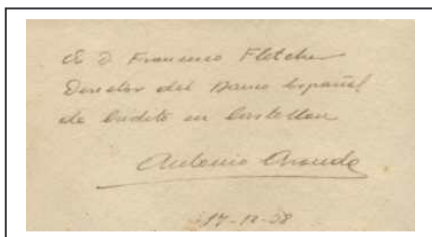 A D. Francisco Fletcher
Director del Banco Español
de Credito en Castellon
Antonio Aranda
17-12-38